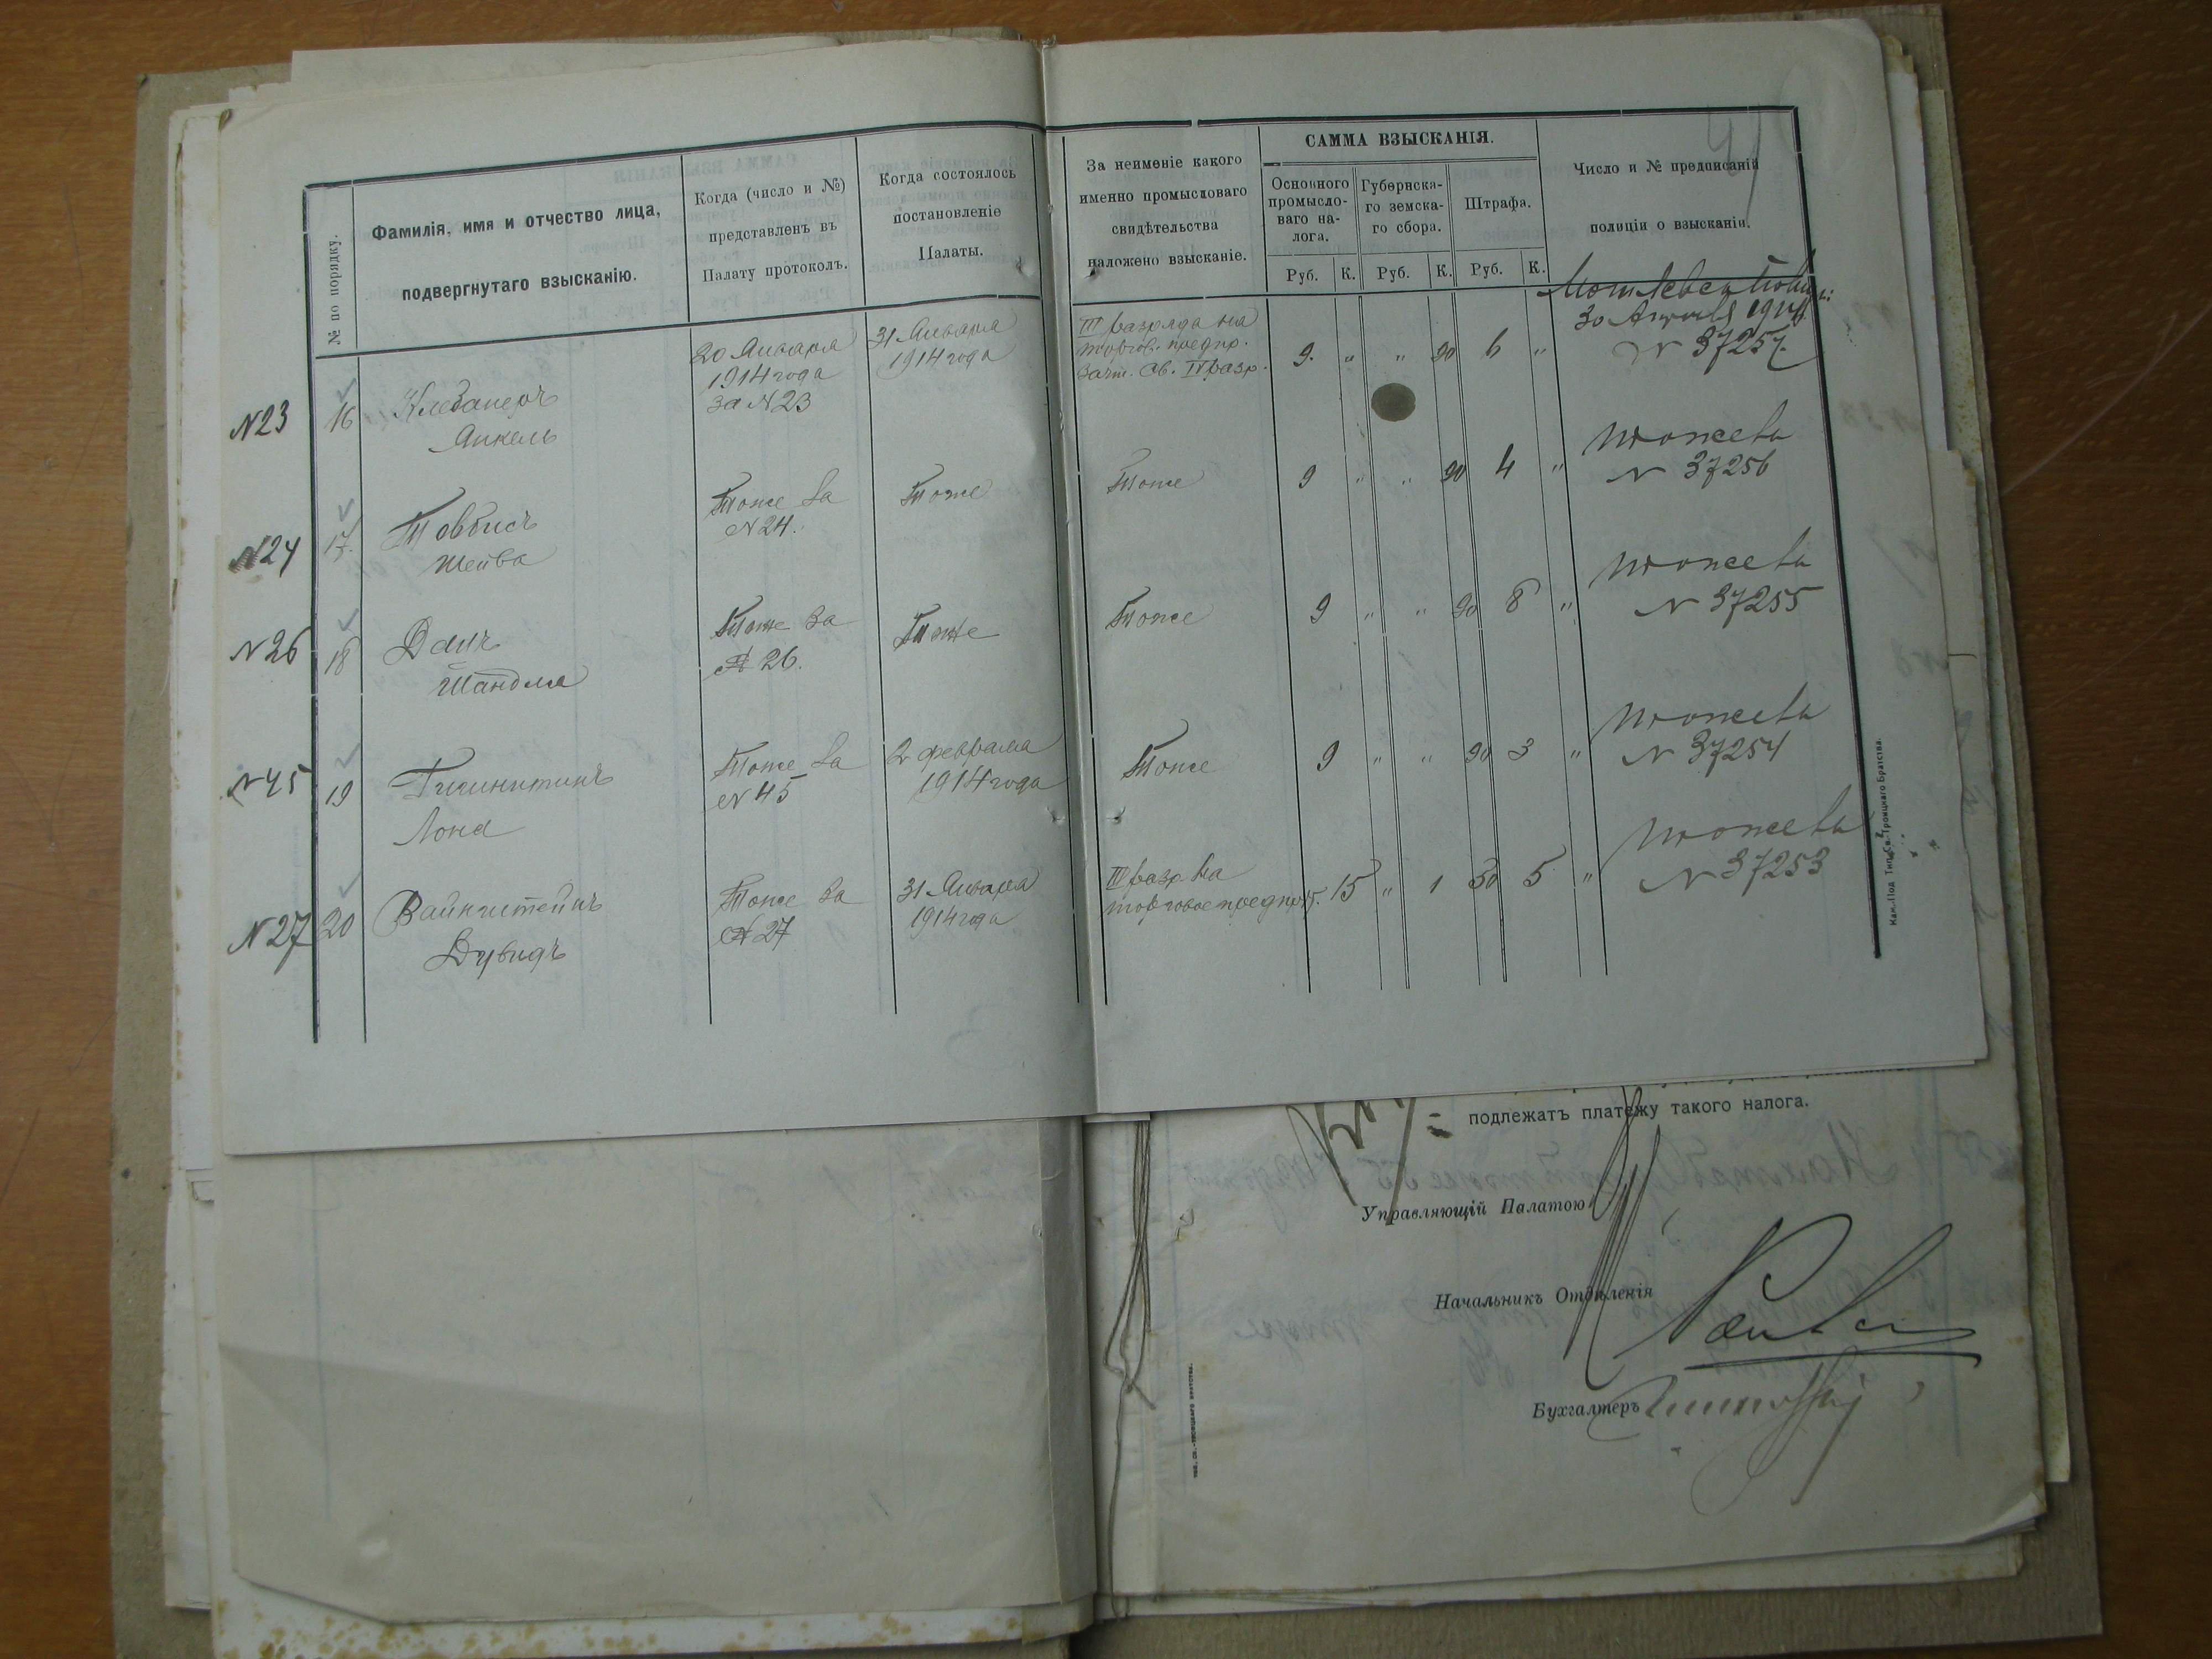 № по порядку.
Фамилія, имя и отчество лица,
подвергнутаго взысканію.
Когда (число и №)
представленъ въ
Палату протоколъ.
Когда состоялось
постановленіе
Палаты.
За неименіе какого
именно промысловаго
свидѣтельства
наложено взысканіе.
САММА ВЗЫСКАНІЯ.
Основного
промысло-
ваго на-
лога.
Губернска-
го земска-
го сбора.
Штрафа.
Руб. К. Руб. К. Руб. К.
Число и № предписаній
полиціи о взысканіи.
N23
16
Клебанеръ
Анкель
20 Января
1914 года
за N23
31 Января
1914 года
III разряда на
торгов. предпр.
Зачт. св. IV разр.
9. " " 90 6 "
30 Апрѣля 1914
N 37257
N24
17.
Товбисъ
Шейва
Тоже за
N24.
Тоже
Тоже
9 " " 90 4 "
тоже за
N 37256
N26
18
Данъ
Шандля
Тоже за
N 26.
Тоже
Тоже
9 " " 90 8 "
тоже за
N 37255
N45
19
Лона
Тоже за
N 45
2 февраля
1914 года
Тоже
9 " " 90 3 "
тоже за
N 37254
N27
20
Вайнштейнъ
Дувидъ
Тоже за
N 27
31 Января
1914 года
III разр на
торговое предпр.
15 " 1 50 5 "
тоже за
N 37253
подлежатъ платежу такого налога.
Управляющій Палатою
Начальникъ Отдѣленія
Бухгалтеръ